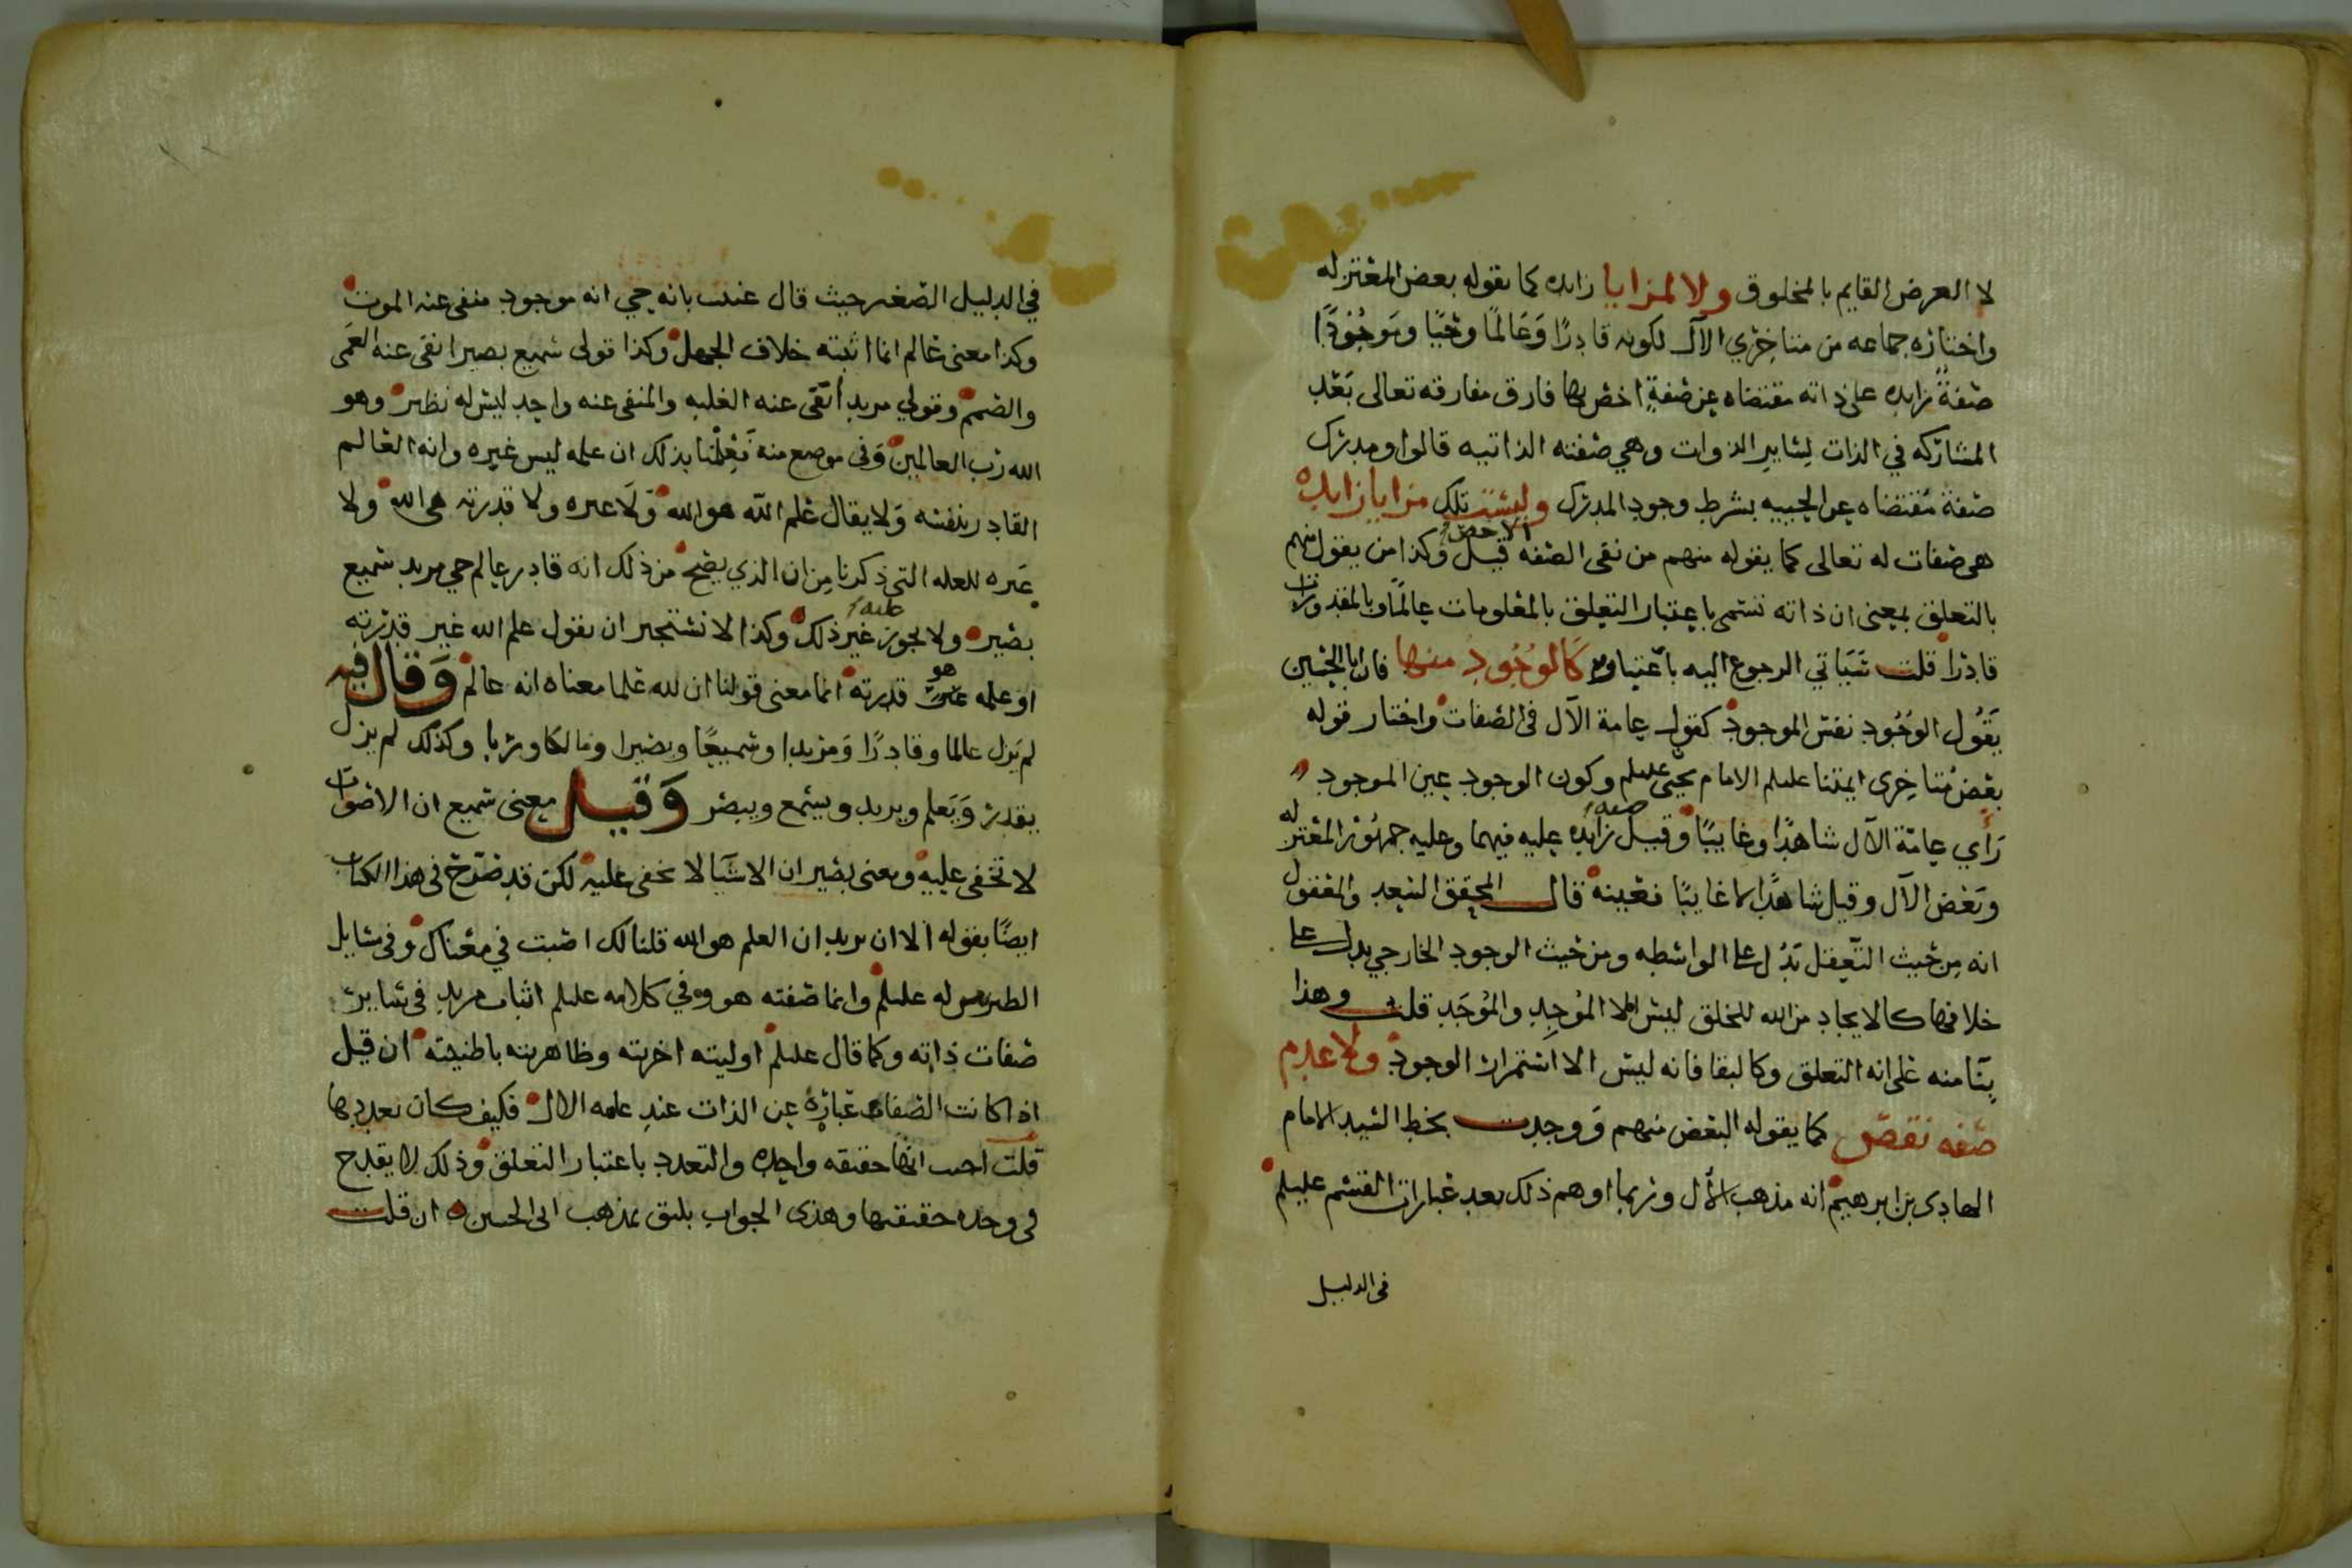 لا العرض القايم بالمخلوق ولا لمزايا زايده كما يقوله بعض المعتزله
واختاره جماعه من متاخري الآل لكونه قادرًا وَعَالمًا وحيًا وموجُودًا
صفةً زايده على ذاته مقتضاه عن صفةٍ اخص بها فارق مفارقه تعالى بَعْد
المشاركه في الذات لِسايرِ الذوات وهي صفته الذاتيه قالوا ومدرك
صفة مقتضاه عن الحييه بشرط وجود المدرك وليست تلك مزايا زايده
هي صفات له تعالى كما يقوله منهم من نفى الصفه الاخص قيل وكذا من يقول منهم
بالتعلق بمعنى ان ذاته تسمى باعتبار التعلق بالمعلومات عالمًا وبالمقدورات
قادرا قلت سَيَاتي الرجوع اليه باعتباره كالوُجُود منها فان ابا الحسين
يَقُول الوجُود نفس الموجود كقول عامة الآل في الصفات واختار قوله
بعض متاخرى ايمتنا عليلم الامام يحيى عليلم وكون الوجود عين الموجود
رَأي عامّة الآل شاهدًا وغايبًا وقيل صفه زايده عليه فيهما وعليه جمهور المعتزله
وبَعْض الآل وقيل شاهدًا لا غايبًا فعينه قال المحقق السيد والمعقول
انه مِن حيث التّعقل تَدُل على الواسطه ومن حيث الوجود الخارجي يدل على
خلافها كالايجاد من الله للخلق ليس الا المُوجِد والمُوجَد قلت وهذا
بِنَا منه على انه التعلق وكالبقا فانه ليس الا استمرار الوجود ولا عدم
صفه نقص كما يقوله البعض منهم وَوجدت بخط السيد الامام
الهادى بن ابرهيم انه مذهب الأل وربما اوهم ذلك بعد عبارات القسم عليلم
في الدليل
في الدليل الصغير حيث قال عنيت بانه حي انه موجود منفى عنه الموت
وكذا معنى عالم انما اثبته خلاف الجهل وكذا قولى سميع بصير انفى عنه العَمى
والصمم وقولي مريد أنفى عنه الغلبه والمنفى عنه واحد ليس له نظير وهو
الله رَب العالمين وَفى موضع منه فَعِلْمُنا بذلك ان علمه ليس غيره وانه العالم
القادر بنفسه وَلا يقال علم الله هو الله وَلَا غيره ولا قدرته هى الله ولا
غيره للعله التى ذكرنا مِن ان الذي يصح من ذلك انه قادر عالم حي مريد سميع
بصير ولا يجوز عليه غير ذلك وكذا لا نستجيز ان نقول علم الله غير قدرته
او علمه هو قدرته انما معنى قولنا ان لله علما معناه انه عالم وَقال فيه
لم يَزل عالما وقادرًا وَمريدا وسميعًا وبصيرا ومالكا وربا وكذلك لم يزل
يقدر وَيَعلم ويريد ويسمع ويبصر وَقيل معنى سميع ان الاصوات
لا تخفى عليه ومعنى بصير ان الاشيَا لا تخفى عليه لكن قد صَرّح في هذا الكتاب
ايضًا بقوله الا ان يريد ان العلم هو الله قلنا لك اصبت في معناك وفى مسايل
الطبريين له عليلم وانما صفته هو وفي كلامه عليلم اثبات مريد في ساير
صفات ذاته وكما قال عليلم اوليته اخريته وظاهريته باطنيته ان قيل
اذا كانت الصفات عبارة عن الذات عند عامه الال فكيف كان تعديدها
قلت اجيب انها حقيقه واحده والتعدد باعتبار التعلق وذلك لا يقدح
في وحده حقيقتها وهذى الجواب يليق بمذهب ابى الحسين ان قلت